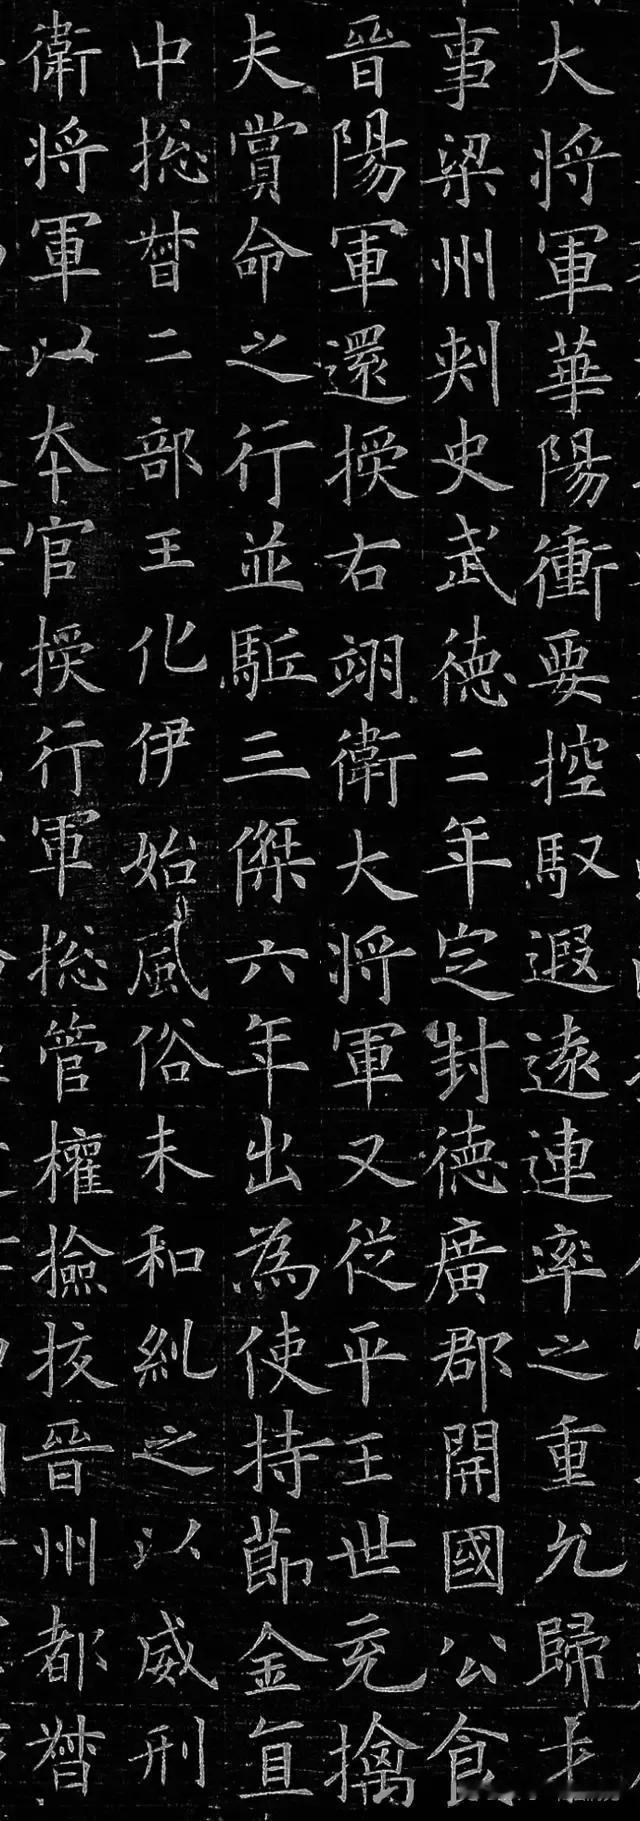 大将軍華陽衝要控馭遐遠連率之重允歸
事梁州刾史武德二年定封德廣郡開國公食
晉陽軍還授右翊衛大将軍又從平王世充擒
夫賞命之行並駈三傑六年出為使持節金直
中捴督二部王化伊始風俗未和糺之以威刑
衛将軍以本官授行軍捴管權撿挍晉州都督